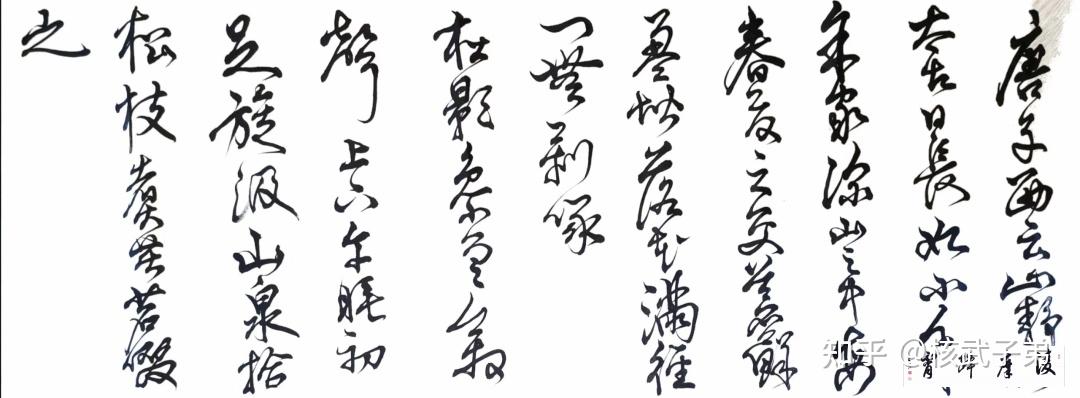 唐子西云山靜
太古日長如小年
余家深山之中每
春夏之交蒼蘚
盈階落花滿徑
門無剝啄
松影參差禽
聲上下午睡初
足旋汲山泉拾
松枝煮苦茗啜
之
知乎 @核武子弟